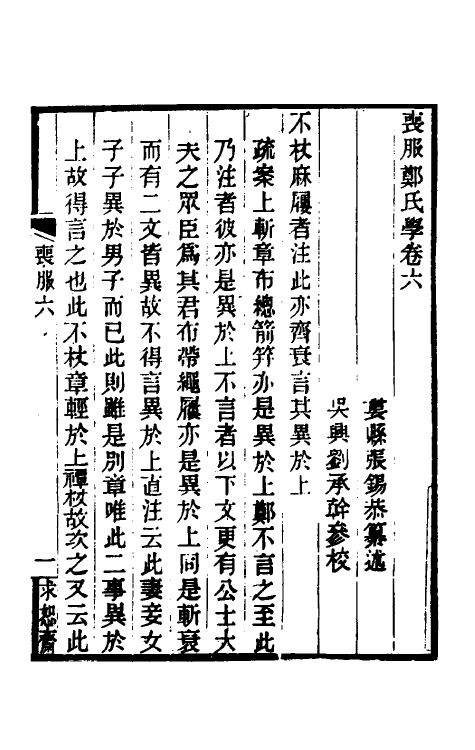 喪服鄭氏學卷六
婁縣張錫恭纂述
吳興劉承幹參校
不杖麻屨者注此亦齊衰言其異於上
疏案上斬章布總箭笄亦是異於上鄭不言之至此
乃注者彼亦是異於上不言者以下文更有公士大
夫之眾臣為其君布帶繩屨亦是異於上同是斬衰
而有二文皆異故不得言異於上直注云此妻妾女
子子異於男子而已此則雖是別章唯此二事異於
上故得言之也此不杖章輕於上禫杖故次之又云此
喪服六
一
求恕齋